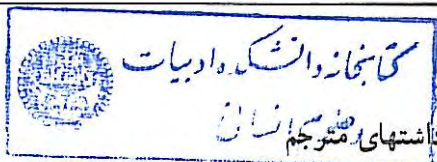 کتابخانه دانشکده ادبیات
و علوم انسانی
اشتهای مترجم